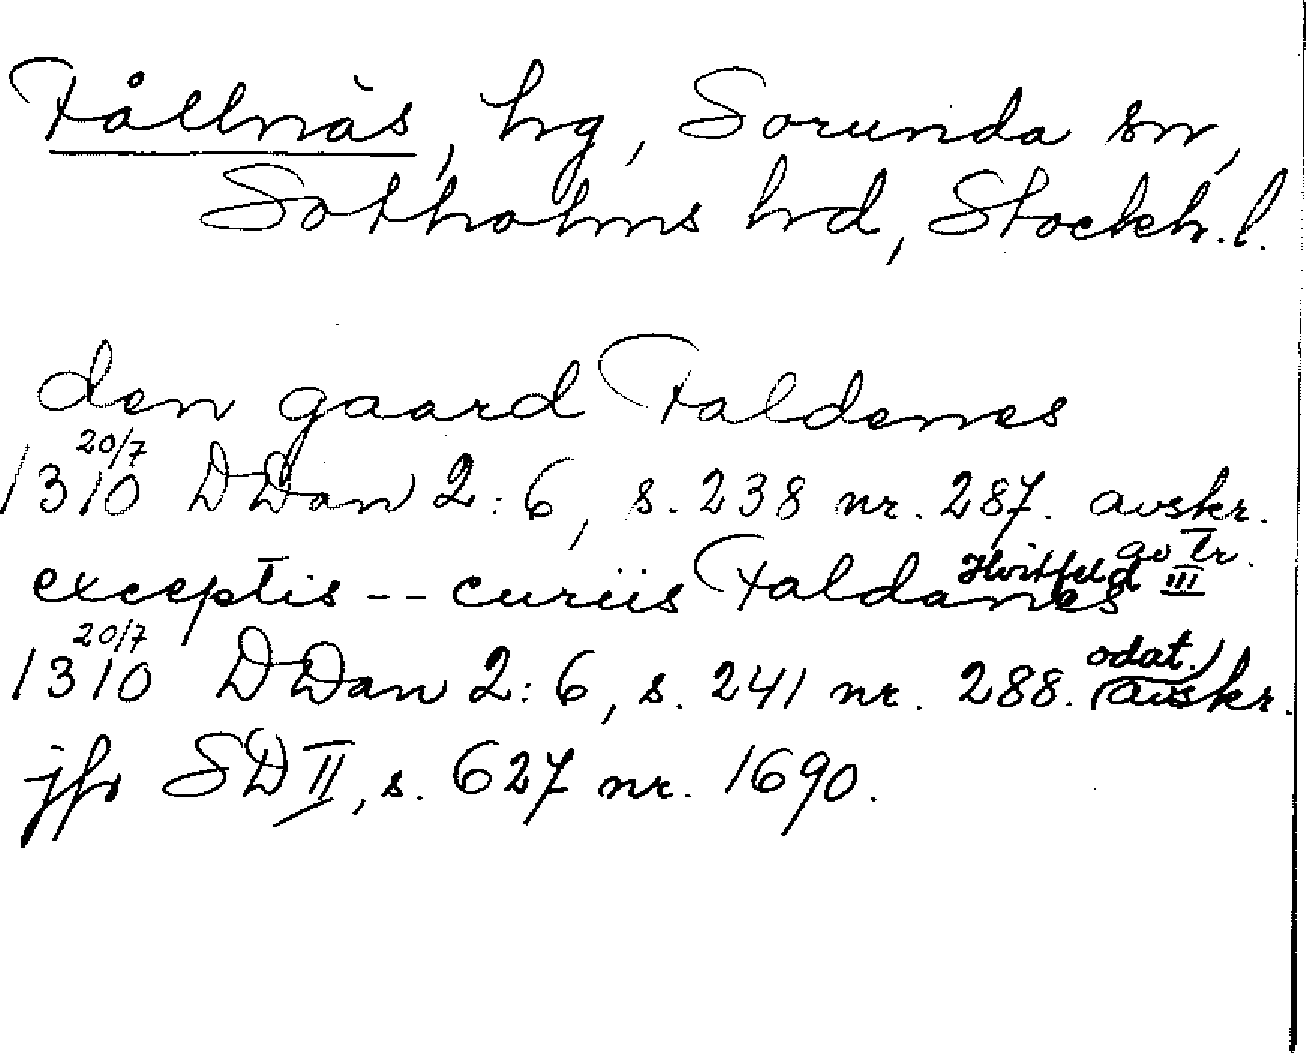 Fållnäs, hg, Sorunda sn,
Sotholms hd, Stockh. l.
den gaard Faldenes
1310 20/7 DDan 2:6, s. 238 nr. 287. avskr.
av Tr.
Hvitfeld III
exceptis -- curiis Faldanes
1310 20/7 DDan 2:6, s. 241 nr. 288. odat. avskr.
jfr SD II, s. 627 nr. 1690.